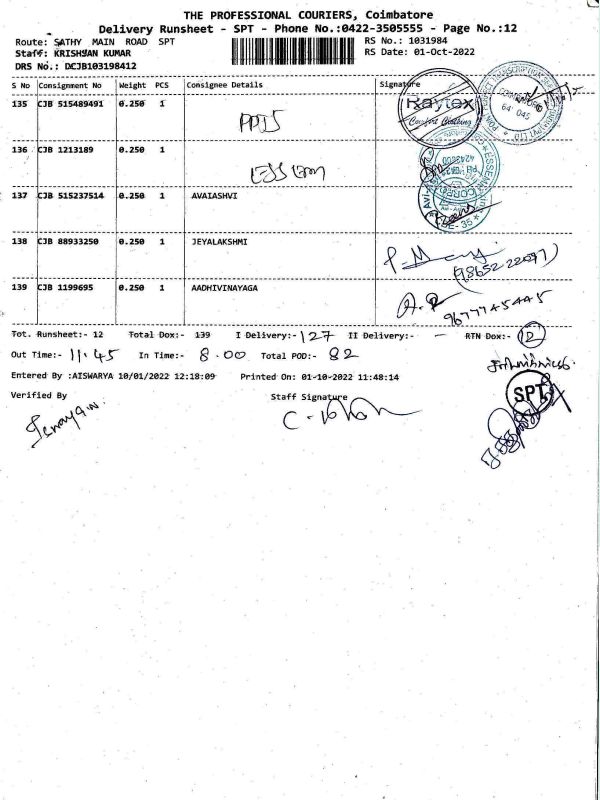 THE PROFESSIONAL COURIERS, Coimbatore
Delivery Runsheet - SPT - Phone No.:0422-3505555 - Page No.:12
Route: SATHY MAIN ROAD SPT RS No.: 1031984
Staff: KRISHNAN KUMAR RS Date: 01-Oct-2022
DRS No.: DCJB103198412
S No Consignment No Weight PCS Consignee Details Signature
135 CJB 515489491 0.250 1 Raytex
Comfort Clothing
136 CJB 1213189 0.250 1
137 CJB 515237514 0.250 1 AVAIASHVI
138 CJB 88933250 0.250 1 JEYALAKSHMI
(98652 22097)
139 CJB 1199695 0.250 1 AADHIVINAYAGA
9677745445
Tot. Runsheet:- 12 Total Dox:- 139 I Delivery:- 127 II Delivery:- - RTN Dox:- 12
Out Time:- 11.45 In Time:- 8.00 Total POD:- 82
Entered By :AISWARYA 10/01/2022 12:18:09 Printed On: 01-10-2022 11:48:14
Verified By Staff Signature SPT